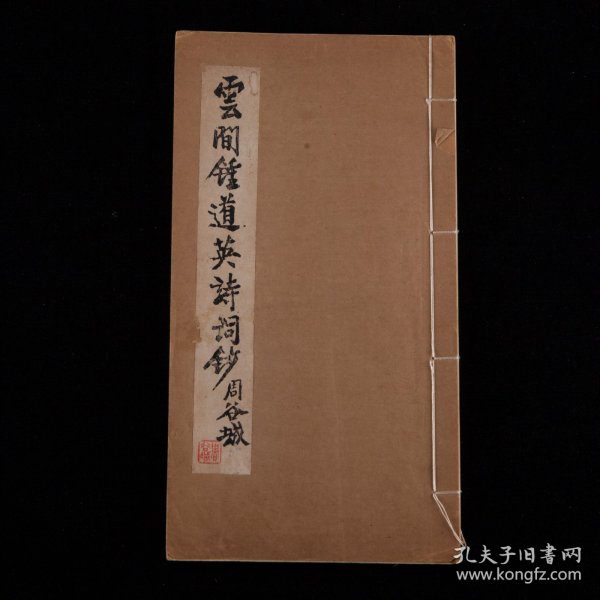 雲間鍾道英詩詞鈔
周谷城
孔夫子旧书网
www.kongfz.com